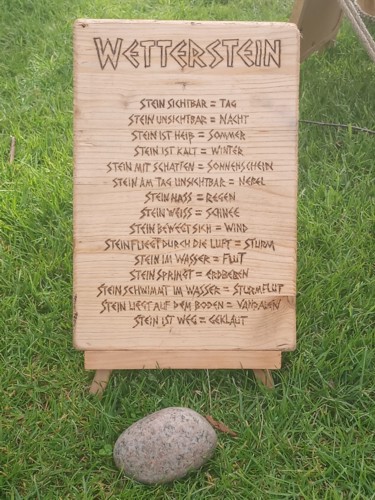 WETTERSTEIN
STEIN SICHTBAR = TAG
STEIN UNSICHTBAR = NACHT
STEIN IST HEIß = SOMMER
STEIN IST KALT = WINTER
STEIN MIT SCHATTEN = SONNENSCHEIN
STEIN AM TAG UNSICHTBAR = NEBEL
STEIN NASS = REGEN
STEIN WEISS = SCHNEE
STEIN BEWEGT SICH = WIND
STEIN FLIEGT DURCH DIE LUFT = STURM
STEIN IM WASSER = FLUT
STEIN SPRINGT = ERDBEBEN
STEIN SCHWIMMT IM WASSER = STURMFLUT
STEIN LIEGT AUF DEM BODEN = VANDALEN
STEIN IST WEG = GEKLAUT